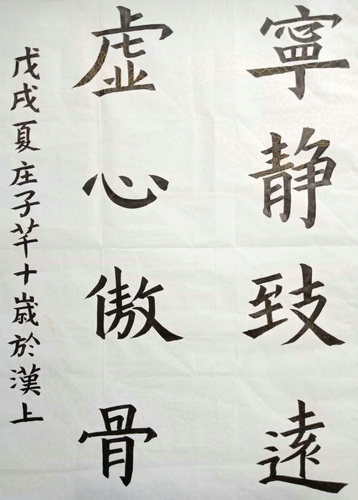 寧静致遠
虚心傲骨
戊戌夏庄子芊十歲於漢上